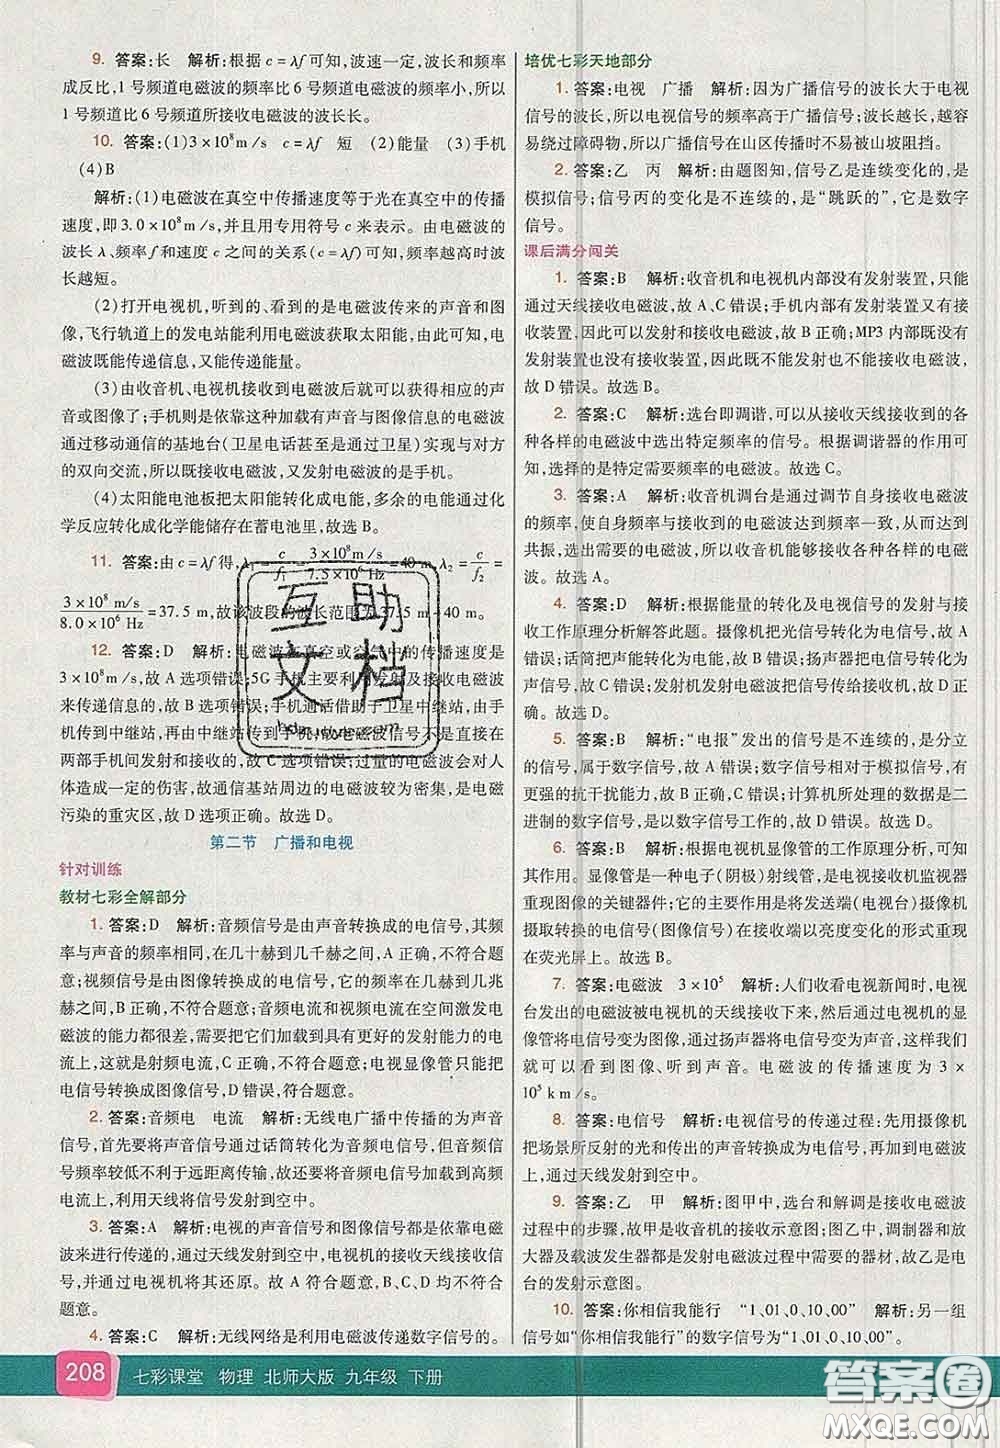 9. 答案:长　解析:根据 c=λf 可知,波速一定,波长和频率
成反比,1 号频道电磁波的频率比 6 号频道的频率小,所以
1 号频道比 6 号频道所接收电磁波的波长长。
10. 答案:(1)3×10⁸ m/s　c=λf　短　(2)能量　(3)手机
(4)B
解析:(1)电磁波在真空中传播速度等于光在真空中的传播
速度,即 3.0×10⁸ m/s,并且用专用符号 c 代表。由电磁波的
波长 λ、频率 f 和速度 c 之间的关系(c=λf)可知频率越高时波长
越短。
(2)打开电视机,听到的、看到的是电磁波传来的声音和图
像,飞行轨道上的发电站能利用电磁波获取太阳能,由此可知,电
磁波既能传递信息,又能传递能量。
(3)由收音机、电视机接收到电磁波后就可以获得相应的声
音或图像了;手机则是依靠这种加载有声音与图像信息的电磁波
通过移动通信的基地台(卫星电话甚至是通过卫星)实现与对方
的双向交流,所以既接收电磁波,又发射电磁波的是手机。
(4)太阳能电池板把太阳能转化成电能,多余的电能通过化
学反应转化成化学能储存在蓄电池里,故选 B。
11. 答案:由 c=λf 得,λ₁=c/f₁=3×10⁸ m/s/7.5×10⁶ Hz=40 m,λ₂=c/f₂=
3×10⁸ m/s/8.0×10⁶ Hz=37.5 m,故该波段的波长范围为 37.5 m~40 m。
12. 答案:D　解析:电磁波在真空或空气中的传播速度是
3×10⁸ m/s,故 A 选项错误;5G 手机主要利用电磁波
来传递信息,故 B 选项错误;手机通话借助于中继站,由手机
传到中继站,再由中继站传到手机,故不能直接在
两部手机间发射和接收,故 C 选项错误;过量的电磁波会对人
体造成一定的伤害,故通信基站周边的电磁波较为密集,是电磁
污染的重灾区,故 D 选项正确。故选 D。
第二节　广播和电视
针对训练
教材七彩全解部分
1. 答案:D　解析:音频信号是由声音转换成的电信号,其频
率与声音的频率相同,在几十赫到几千赫之间,A 正确,不符合题
意;视频信号是由图像转换成的电信号,它的频率在几赫到几兆
赫之间,B 正确,不符合题意;音频电流和视频电流在空间激发电
磁波的能力都很差,需要把它们加载到具有更好的发射能力的电
流上,这就是射频电流,C 正确,不符合题意;电视显像管只能把
电信号转换成图像信号,D 错误,符合题意。
2. 答案:音频电　电流　解析:无线电广播中传播的为声音
信号,首先要将声音信号通过话筒转化为音频电信号,但音频信
号频率较低不利于远距离传输,故还要将音频电信号加载到高频
电流上,利用天线将信号发射到空中。
3. 答案:A　解析:电视的声音信号和图像信号都是依靠电磁
波来进行传递的,通过天线发射到空中,电视机的接收天线接收信
号,并通过电视机将其还原。故 A 符合题意,B、C、D 均不符合
题意。
4. 答案:C　解析:无线网络是利用电磁波传递数字信号的。
培优七彩天地部分
1. 答案:电视　广播　解析:因为广播信号的波长大于电视
信号的波长,所以电视信号的频率高于广播信号;波长越长,越容
易绕过障碍物,所以广播信号在山区传播时不易被山坡阻挡。
2. 答案:乙　丙　解析:由题图知,信号乙是连续变化的,是
模拟信号;信号丙的变化是不连续的,是“跳跃的”,它是数字
信号。
课后满分闯关
1. 答案:B　解析:收音机和电视机内部没有发射装置,只能
通过天线接收电磁波,故 A、C 错误;手机内部有发射装置又有接
收装置,因此可以发射和接收电磁波,故 B 正确;MP3 内部既没有
发射装置也没有接收装置,因此既不能发射也不能接收电磁波,
故 D 错误。故选 B。
2. 答案:C　解析:选台即调谐,可以从接收天线接收到的各
种各样的电磁波中选出特定频率的信号。根据调谐器的作用可
知,选择的是特定需要频率的电磁波。故选 C。
3. 答案:A　解析:收音机调台是通过调节自身接收电磁波
的频率,使自身频率与电磁波达到频率一致,从而达到
共振,选出信号,所以收音机能够接收各种各样的电磁
波。故选 A。
4. 答案:D　解析:根据能量的转化及电视信号的发射与
接收工作原理分析解答此题。摄像机把光信号转化为电信号;
话筒把声能转化为电能;扬声器把电信号转化为
声信号,故 C 错误;发射机发射电磁波把信号传给接收机,
故 D 正确。故选 D。
5. 答案:B　解析:“电报”发出的信号是不连续的,是分立
的信号,属于数字信号,故 A 错误;数字信号相对于模拟信号,具
有更强的抗干扰能力,故 B 正确、C 错误;计算机所处理的数据是二
进制的数字信号,是以数字信号工作的,D 错误。故选 B。
6. 答案:B　解析:根据电视机显像管的工作原理分析,可知
其作用。显像管是一种电子(阴极)射线管,是电视接收机监视器
重现图像的关键器件。它的主要作用是将发送端(电视台)摄像机
摄取转换的电信号(图像信号)在接收端以亮度变化的形式重现
在荧光屏上。故选 B。
7. 答案:电磁波　3×10⁵　解析:人们收看电视新闻时,电视
台发出的电磁波被电视机的天线接收下来,然后由电视机的显
像管将电信号变为图像,通过扬声器将电信号变为声音,这样我
们便可以看到图像、听到声音。电磁波在真空中的速度为 3×
10⁵ km/s。
8. 答案:电信号　解析:电视信号的传递过程:先用摄像机
把场景所反射的光和传出的声音转换成为电信号,加载到电磁波
上,通过天线发射到空中。
9. 答案:乙　甲　解析:图甲中,选台和解调是接收电磁波
过程中的步骤,故甲是收音机的接收示意图;图乙中,调制器和放
大器及载波发生器都是发射电磁波过程中需要的器材,故乙是电
台的发射示意图。
10. 答案:你相信我能行　“1,01,0,10,00”　解析:另一组
信号“你相信我能行”的数字信号为“1,01,0,10,00”。
208　七彩课堂　物理　北师大版　九年级　下册
互助
文档
答案圈
MXQE.COM